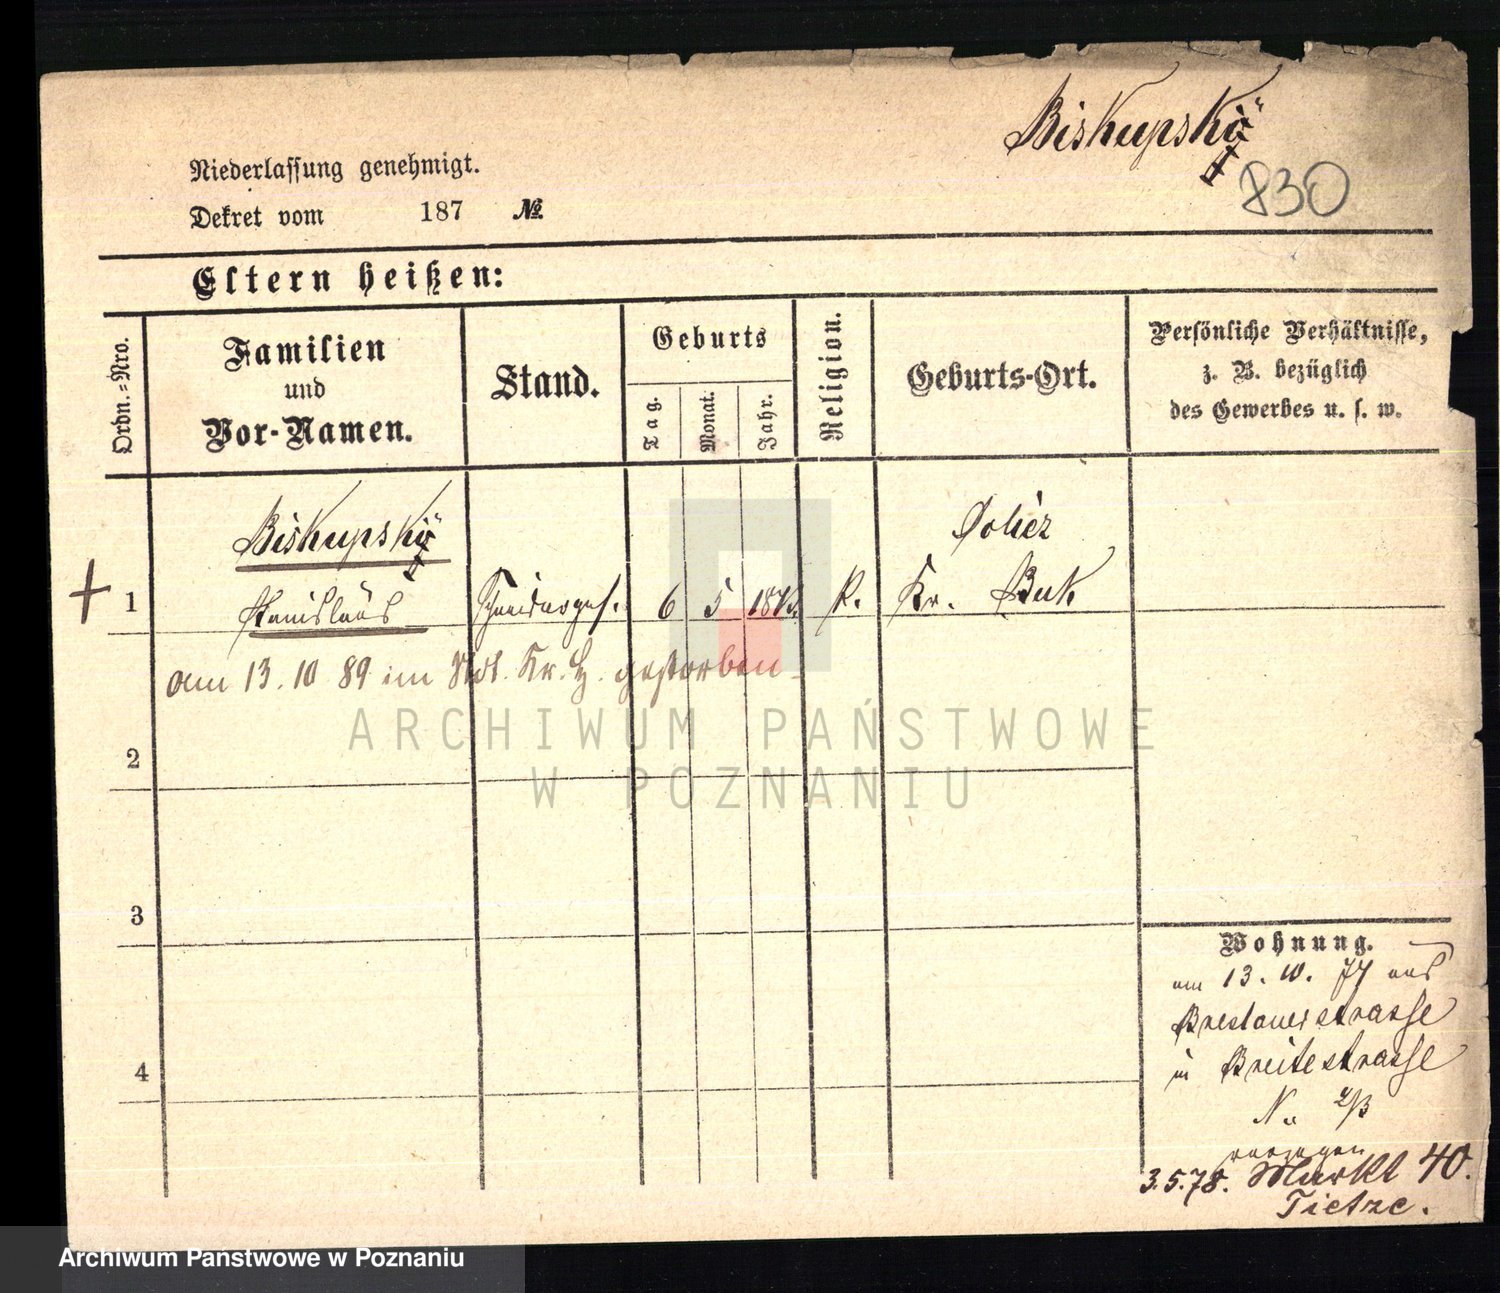 Biskupski
830
Niederlassung genehmigt.
Dekret vom 187 №
Eltern heißen:
Ordn.-Nro.
Familien
und
Vor-Namen.
Stand.
Geburts
Tag.
Monat.
Jahr.
Religion.
Geburts-Ort.
Persönliche Verhältnisse,
z. B. bezüglich
des Gewerbes u. s. w.
Biskupski
Stanislaus
1
Schneiderges. 6 5 K.
Kr. Buk
am 13. 10 89 im Stdt. Kr. H. gestorben
2
3
4
Wohnung.
am 13. 10. 77 aus
Breslauerstrasse
in Breitestrasse
N.
verzogen
3.5.78. Markt 40.
Tietze.
ARCHIWUM PAŃSTWOWE
W POZNANIU
Archiwum Państwowe w Poznaniu